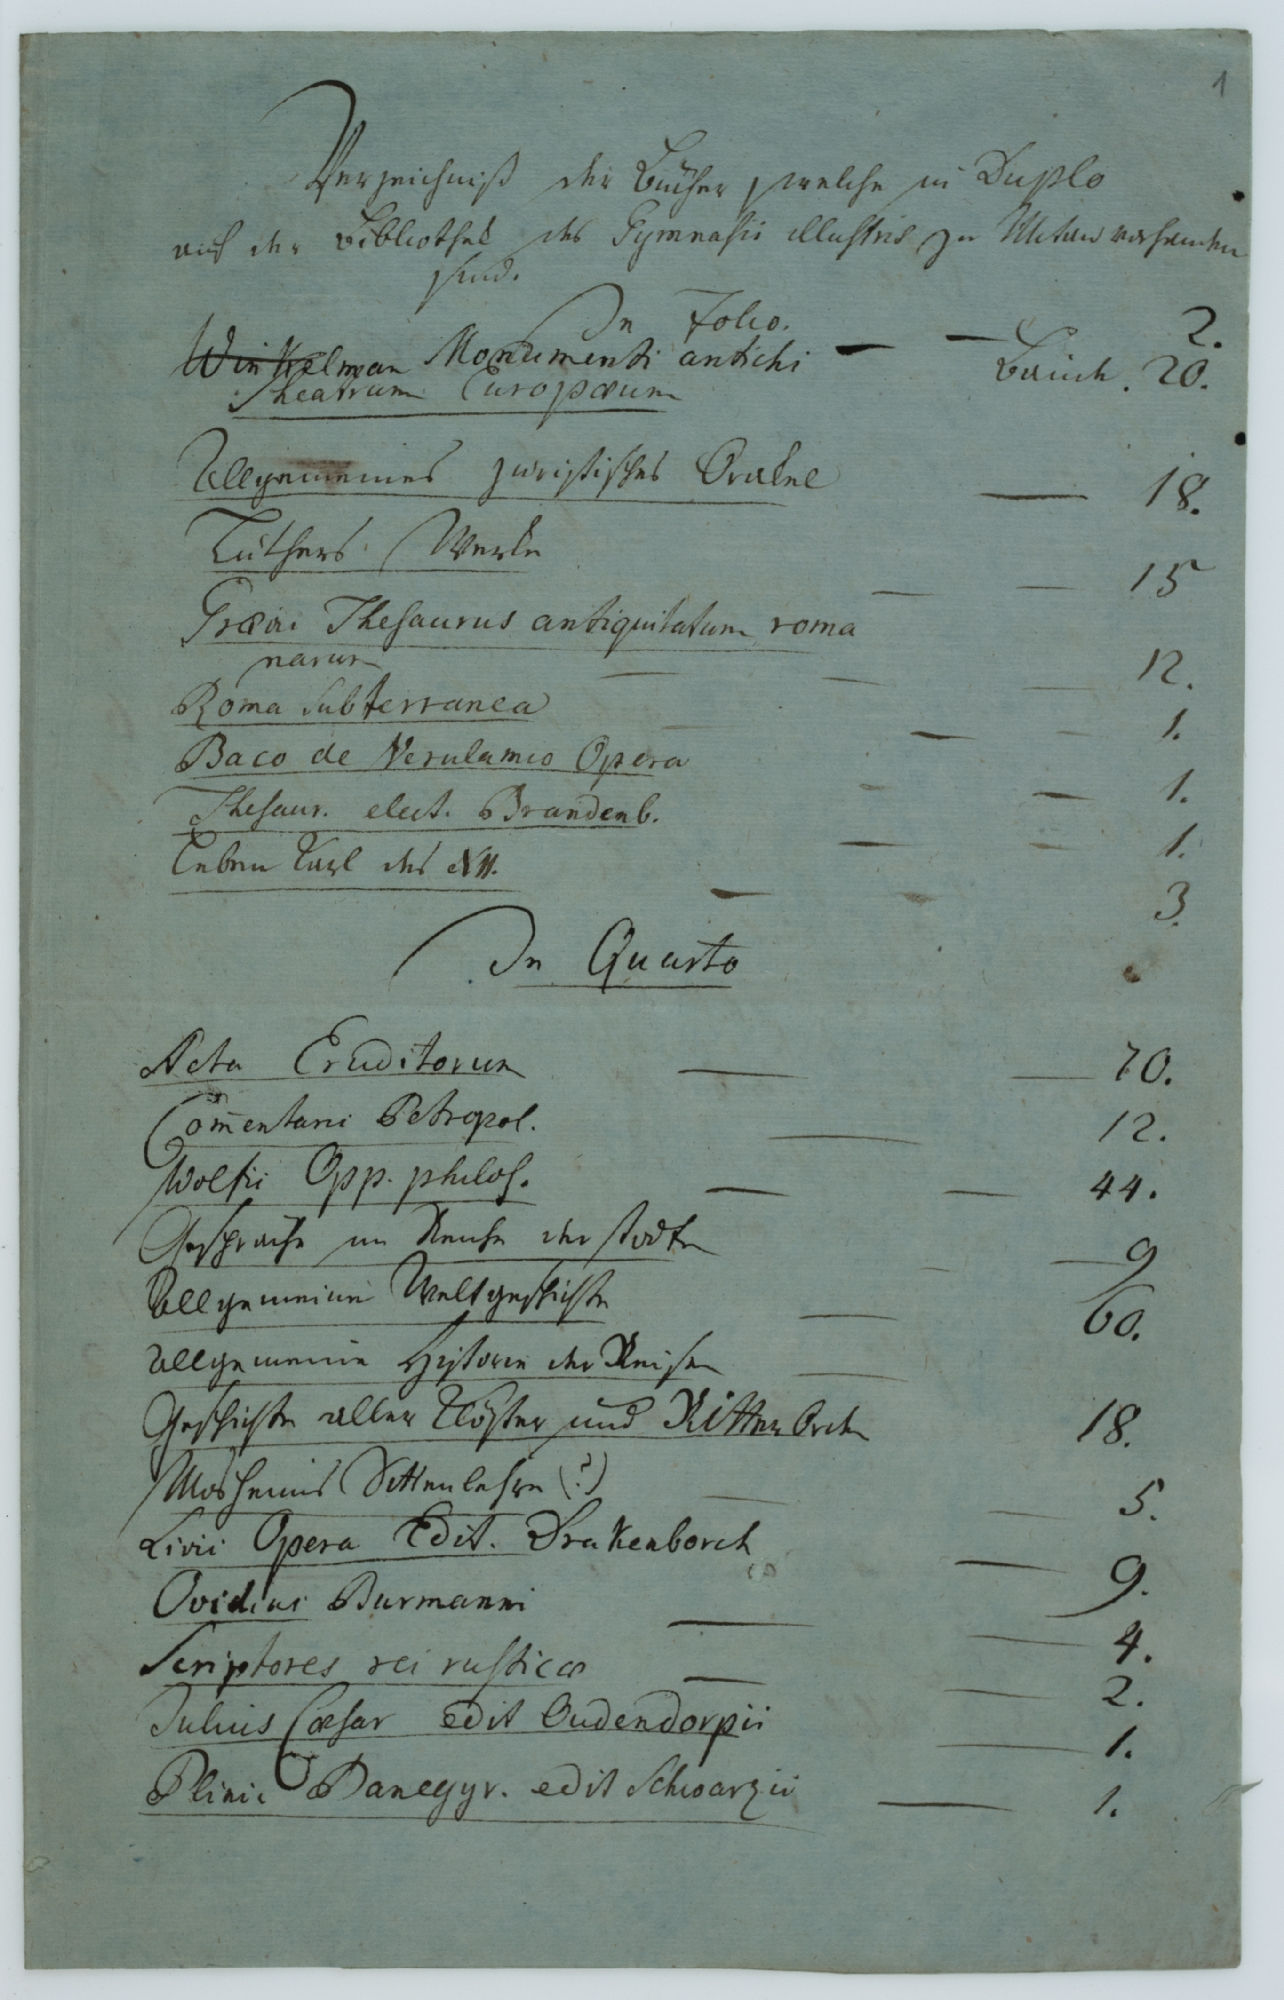 1
Verzeichniß der Bücher welche in Duplo
aus der Bibliothek des Gymnasii illustris zu Mitau vorhanden
sind.
In Folio.
Winkelman Monumenti antichi — — 2.
Theatrum Europæum Bänds. 20.
Allgemeines juristisches Orakel — 18.
Luthers Werke — — 15
Grævii Thesaurus antiquitatum roma
narum — — — 12.
Roma subterranea — — — 1.
Baco de Verulamio Opera — — 1.
Thesaur. elect. Brandenb. — — 1.
Leben Karl des XII. — — 3.
In Quarto
Acta Eruditorum — — 70.
Com̄entarii Petropol. — 12.
Wolfii Opp. philos. — — 44.
Gespräche im Reiche der Todten — — 9
Allgemeine Weltgeschichte — 60.
Allgemeine Historie der Reisen — 18.
Geschichte aller Klöster und Ritter Orden
Mosheims Sittenlehre (?) — — 5.
Livii Opera Edit. Drakenborch — 9.
Ovidius Burmanni — — 4.
Scriptores rei rusticæ — — 2.
Julius Cæsar edit Oudendorpii — 1.
Plinii Panegyr. edit Schwarzii — 1.